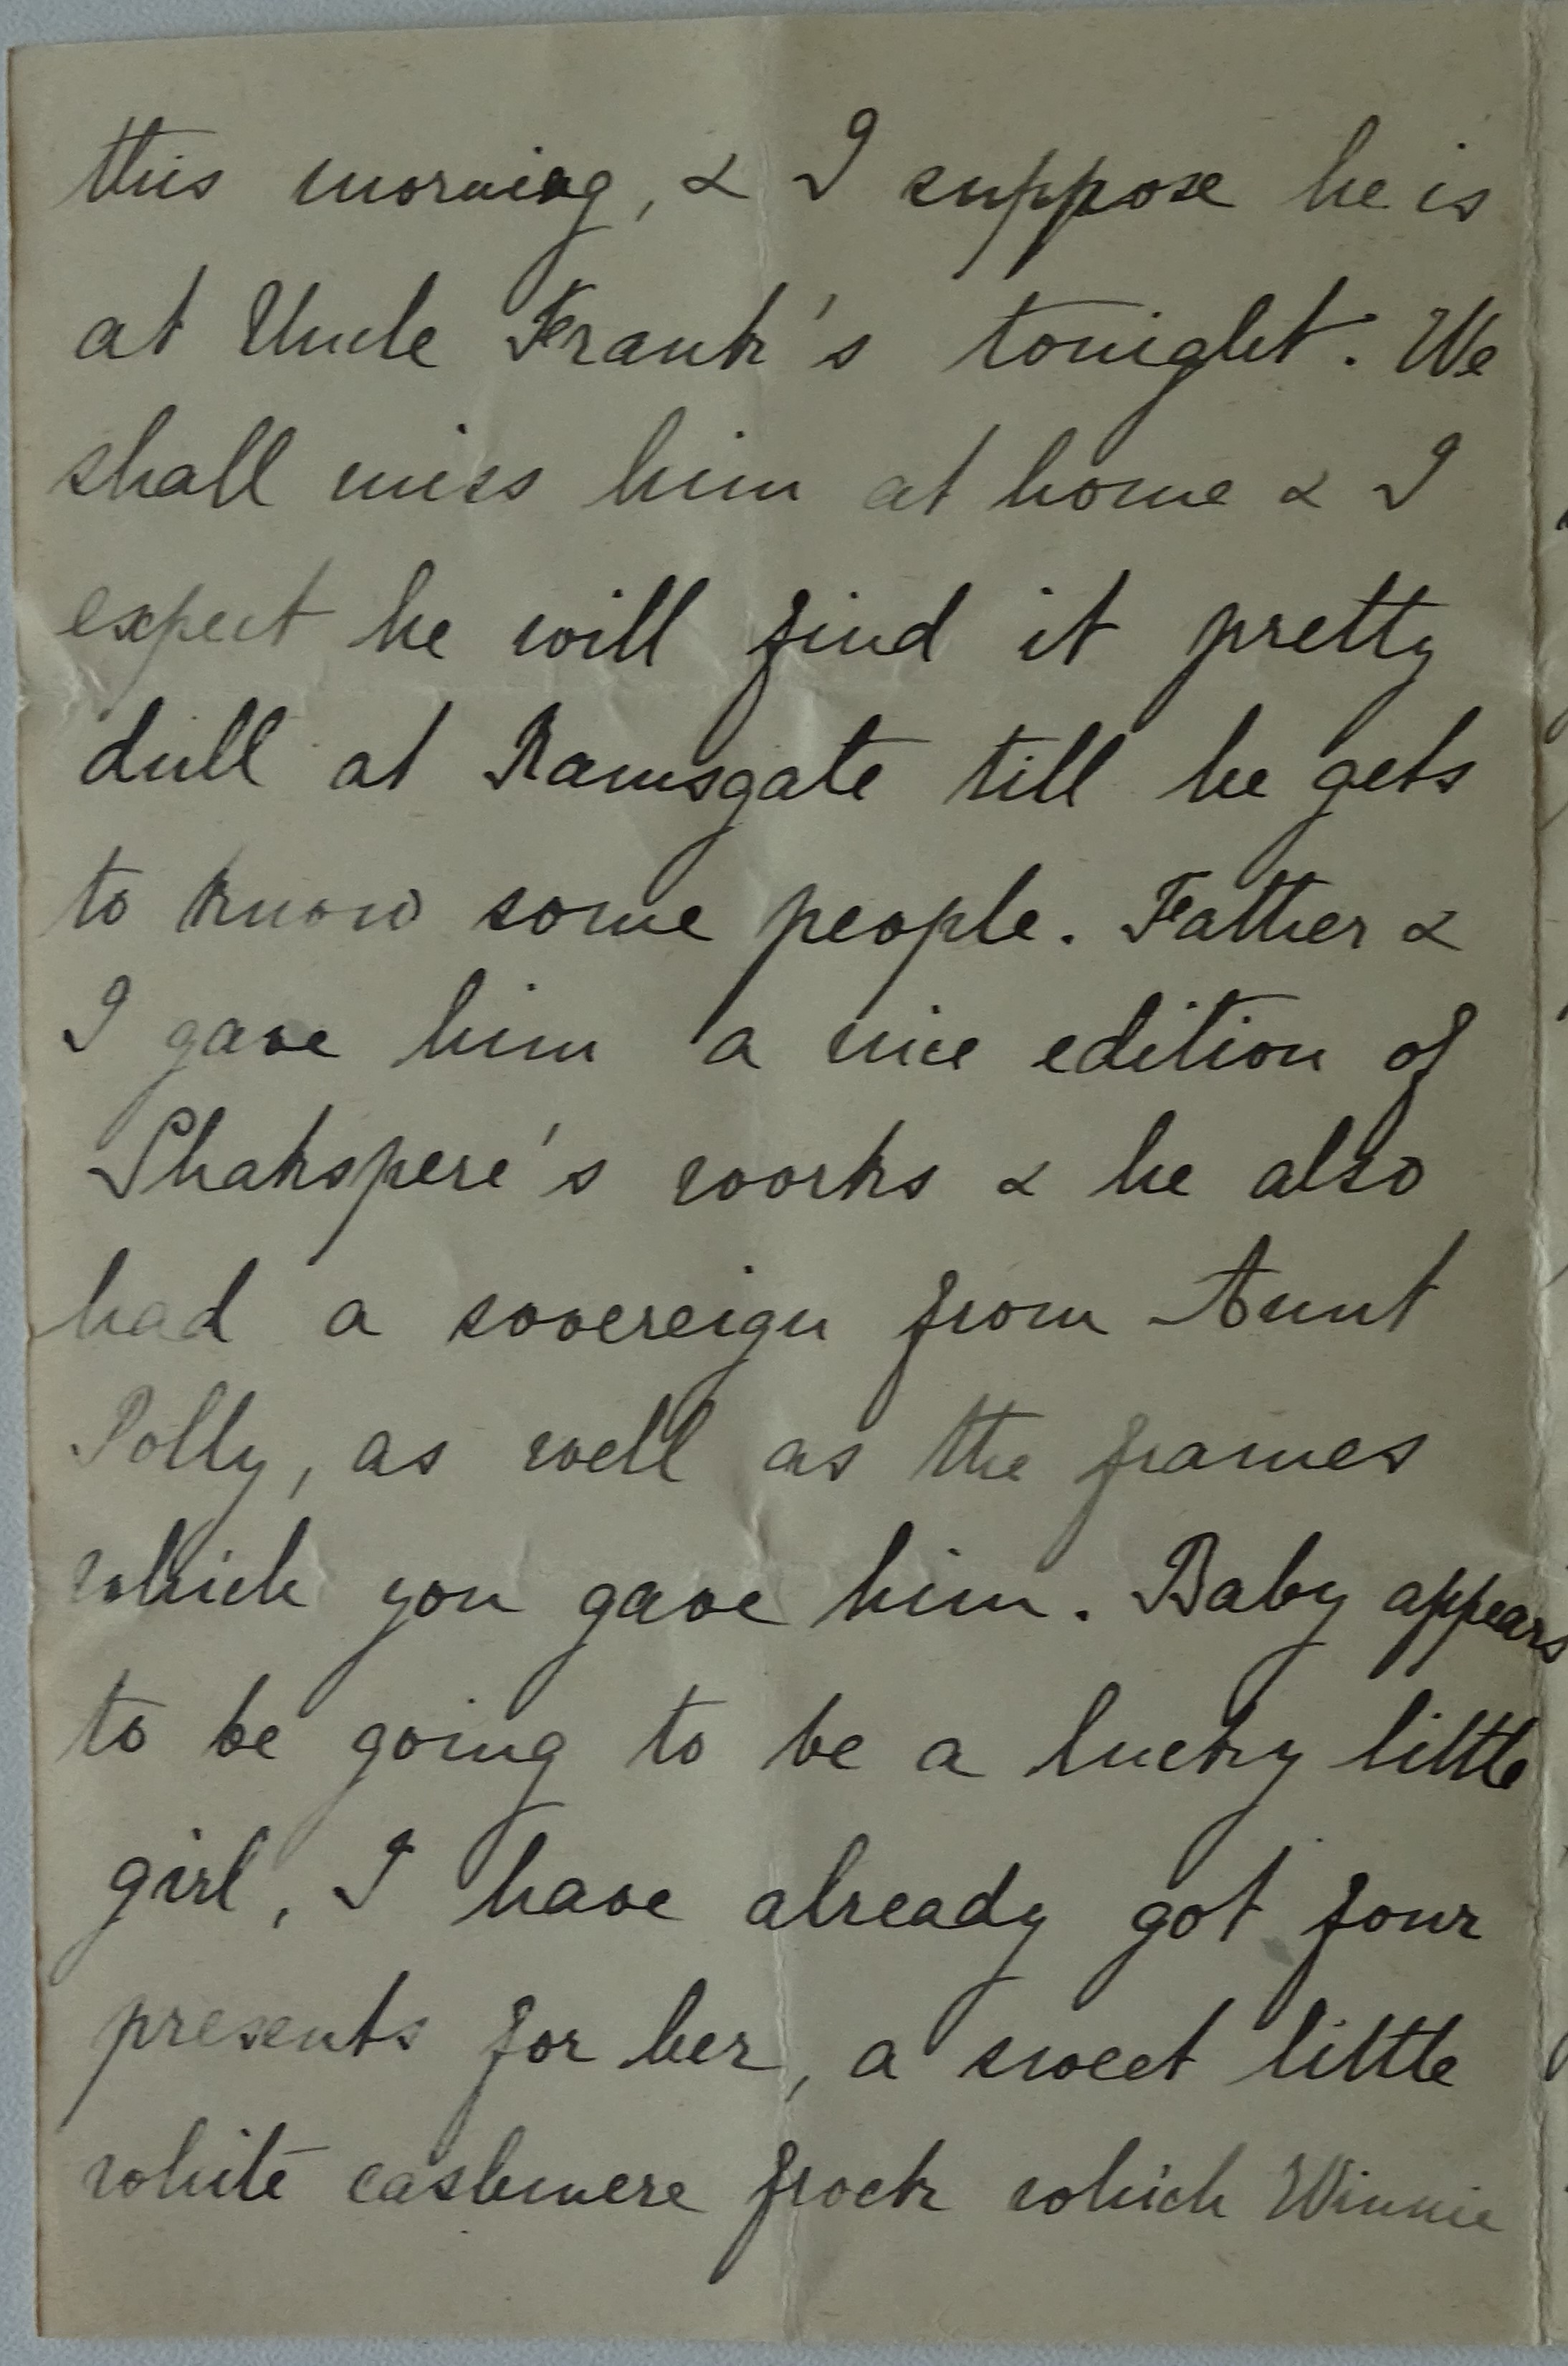 this morning, & I suppose he is
at Uncle Frank's tonight. We
shall miss him at home & I
expect he will find it pretty
dull at Ramsgate till he gets
to know some people. Father &
I gave him a nice edition of
Shakspere's works & he also
had a sovereign from Aunt
Polly, as well as the frames
which you gave him. Baby appears
to be going to be a lucky little
girl, I have already got four
presents for her, a sweet little
white cashmere frock which Winnie